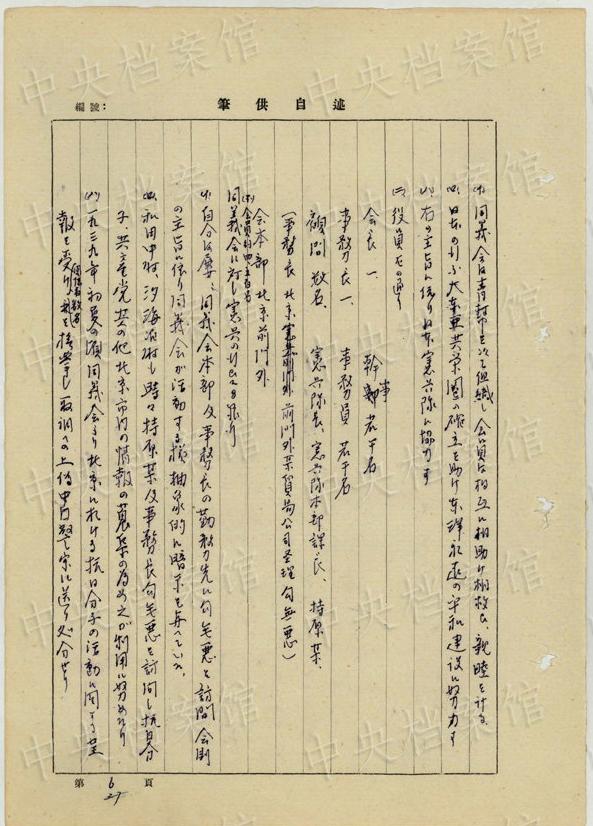 編號：
筆供自述
(イ)同義会は青幇を以て組織し会員は相互に相助け相救ひ、親睦を計る
(ロ)日本の引ふ大東亜共栄圏の確立を助け東洋永遠の平和建設に努力す
(ハ)右の主旨に依り日本憲兵隊に協力す
(二)役員 左の通り
会長 一、 幹事 若干名
事務長 一、 事務員 若干名
顧問 数名、 憲兵隊長、憲兵隊本部課長、持原某、
(事務長 北京 前門外某貿易公司圣理 句無悪)
会本部 北京前門外
同義会に対し憲兵の
(イ)自分は屡々同義会本部及事務長の勤務先に句無悪を訪問 会則
の主旨に依り同義会が活動する様抽象的に暗示を与へていた、
(ロ)和田中村、汐海河村も時々持原某及事務長句無悪を訪問し抗日分
子、共産党其の他北京市内の情報の蒐集の為め之が利用に努めたり
(ハ)一九三九年初夏の頃同義会より北京に於ける抗日分子の活動に関する
報を受け 数名 を 検挙し取調べの上 中国 に送り処分せり
第 6 頁
27
中央档案馆